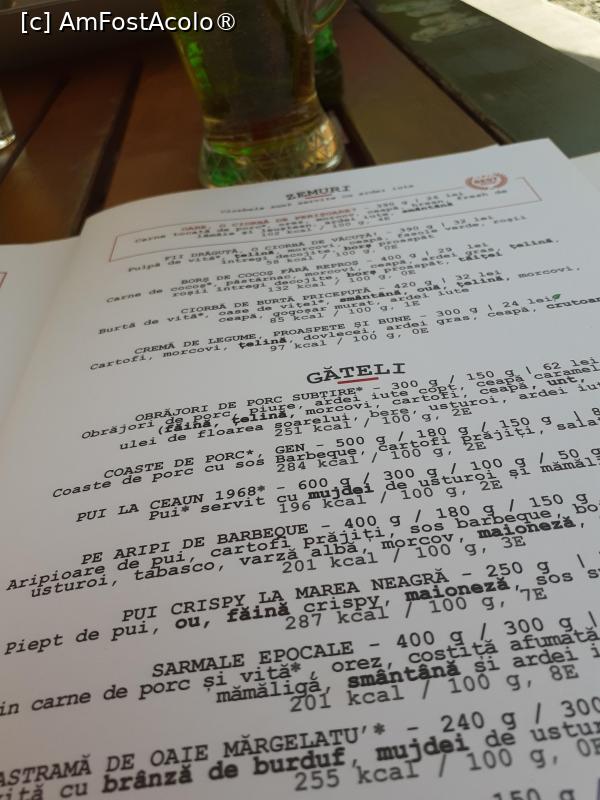 [c] AmFostAcolo®
ZEMURI
Ciorbele sunt servite cu ardei iute
OARE, O CIORBĂ DE PERIȘOARE? - 390 g | 26 lei
Carne tocată de porc*, orez, morcov, ceapă, fresh de
lămâie și leuștean, ardei iute, smântână
FII DRĂGUȚĂ, O CIORBĂ DE VĂCUȚĂ, - 390 g | 32 lei
Pulpă de vită*, țelină, morcovi, ceapă, fasole verde, roșii
întregi decojite, borș proaspăt
58 kcal / 100 g, 0E
BORȘ DE COCOȘ FĂRĂ REPROȘ - 400 g | 29 lei
Carne de cocoș*, păstârnac, morcovi, ceapă, ardei gras, țelină,
roșii întregi decojite, borș proaspăt, tăiței
132 kcal / 100 g, 0E
CIORBĂ DE BURTĂ PRICEPUTĂ - 420 g | 32 lei
Burtă de vită*, oase de vițel*, smântână, ouă, țelină, morcovi,
ceapă, gogoșar murat, ardei iute
85 kcal / 100 g, 1E
CREMĂ DE LEGUME, PROASPETE ȘI BUNE - 300 g | 24 lei
Cartofi, morcovi, țelină, dovlecei, ardei gras, ceapă, crutoane
97 kcal / 100 g, 0E
GĂTELI
OBRĂJORI DE PORC SUBȚIRE* - 300 g / 150 g | 62 lei
Obrăjori de porc, piure, ardei iute copt, ceapă caramel
(făină, țelină, morcovi, cartofi, ceapă, unt,
ulei de floarea soarelui, bere, usturoi, ardei iu
251 kcal / 100 g, 2E
COASTE DE PORC*, GEN - 500 g / 180 g / 150 g | 8
Coaste de porc cu sos Barbeque, cartofi prăjiți, sala
284 kcal / 100 g, 2E
PUI LA CEAUN 1968* - 600 g / 300 g / 100 g / 50 g
Pui* servit cu mujdei de usturoi și mămăli
196 kcal / 100 g, 2E
PE ARIPI DE BARBEQUE - 400 g / 180 g / 150 g
Aripioare de pui, cartofi prăjiți, sos barbeque, bo
usturoi, tabasco, varză albă, morcov, maioneză,
201 kcal / 100 g, 3E
PUI CRISPY LA MAREA NEAGRĂ - 250 g |
Piept de pui, ou, făină crispy, maioneză, sos s
287 kcal / 100 g, 7E
SARMALE EPOCALE - 400 g / 300 g |
in carne de porc și vită*, orez, costiță afumată
mămăligă, smântână și ardei i
201 kcal / 100 g, 8E
ASTRAMĂ DE OAIE MĂRGELATU'* - 240 g / 300
vită cu brânză de burduf, mujdei de ustur
255 kcal / 100 g, 0E
150 g